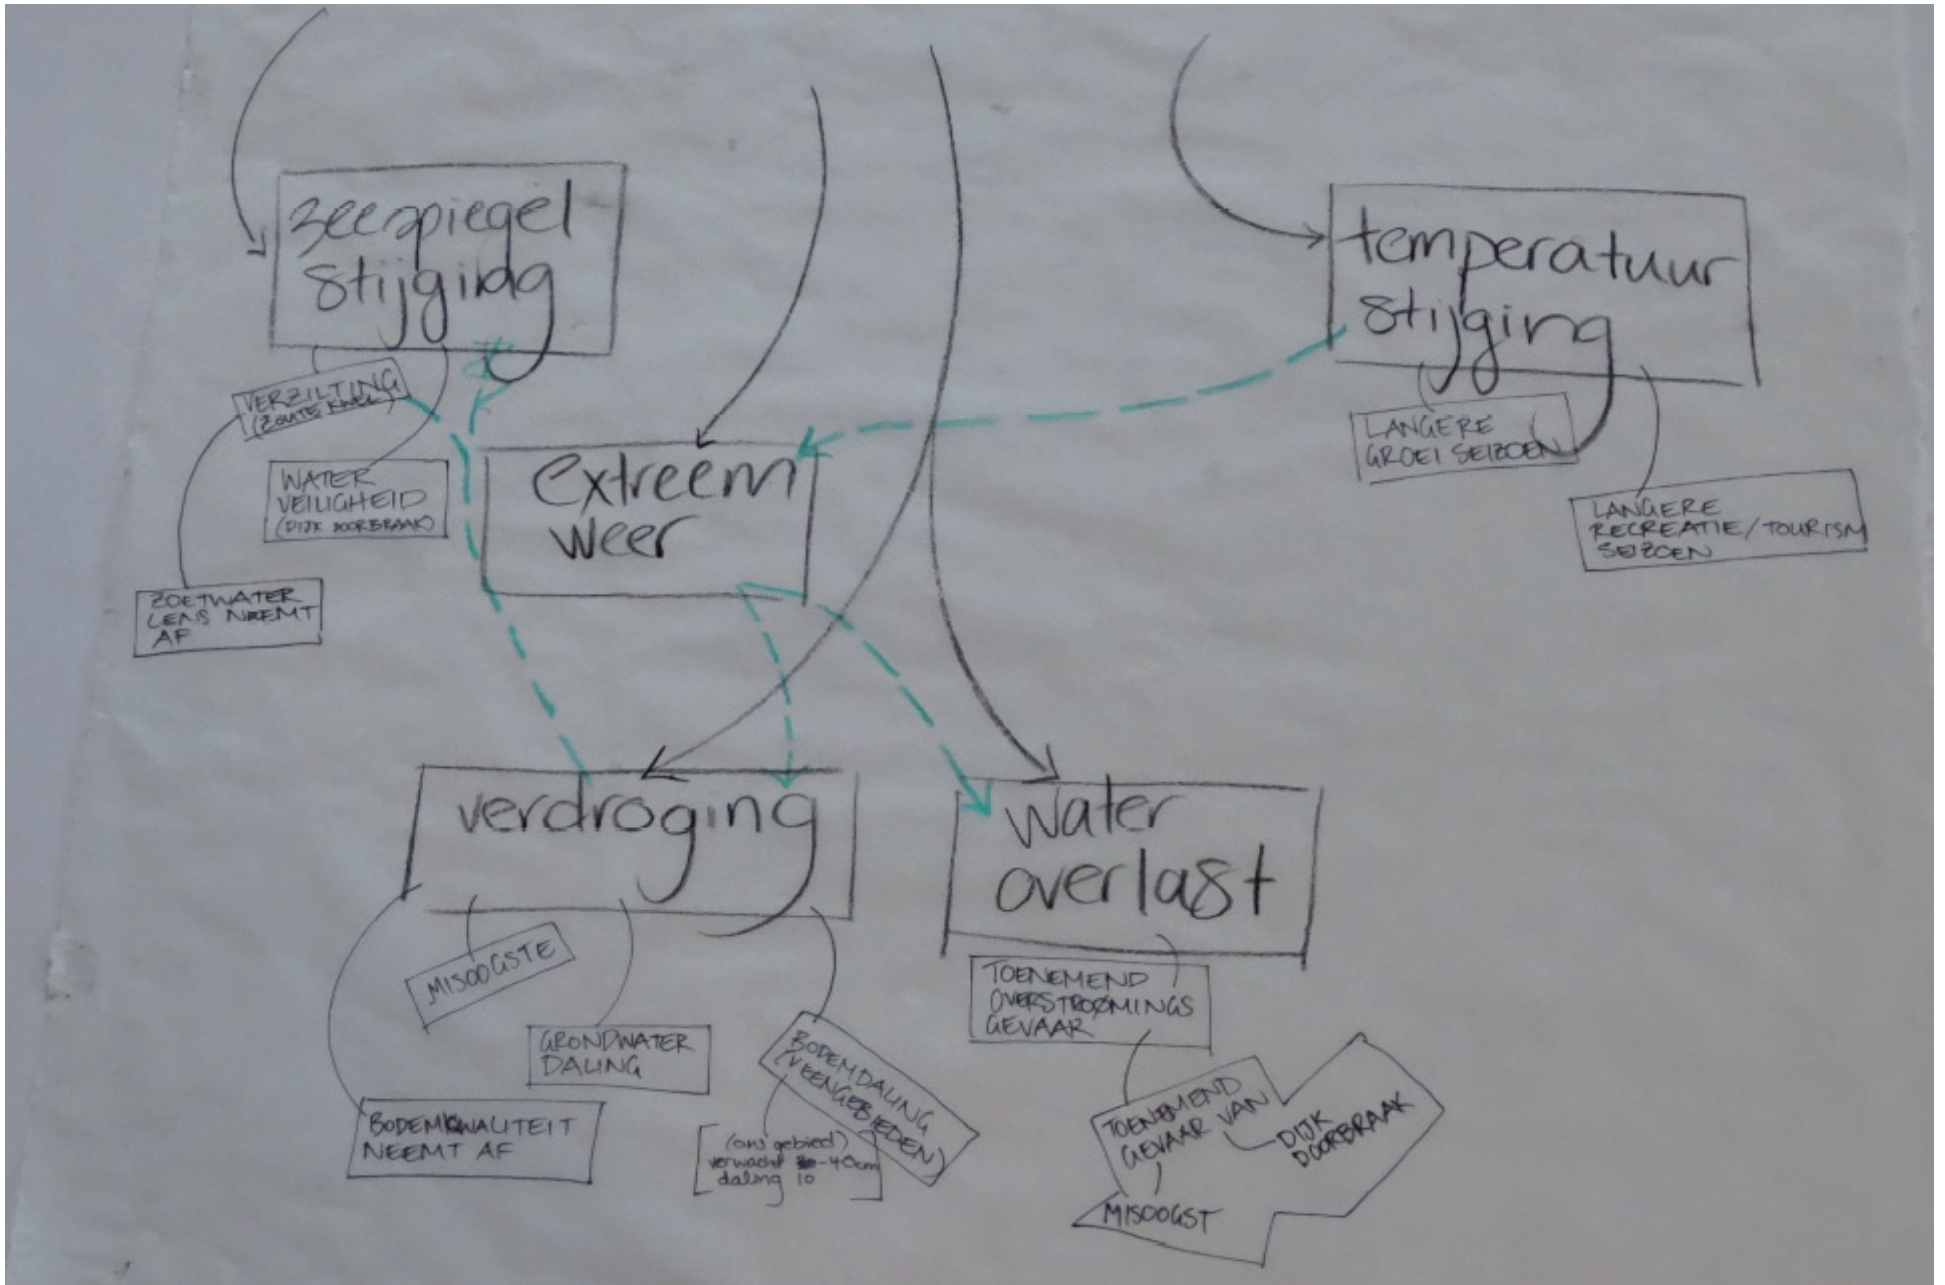 zeespiegel
stijging
VERZILTING
(ZOUTE KWEL)
WATER
VEILIGHEID
(DIJK DOORBRAAK)
ZOETWATER
LENS NEEMT
AF
extreem
weer
temperatuur
stijging
LANGERE
GROEI SEIZOEN
LANGERE
RECREATIE/TOURISM
SEIZOEN
verdroging
MISOOGSTE
GRONDWATER
DALING
BODEMKWALITEIT
NEEMT AF
BODEMDALING
(VEENGEBIEDEN)
(ons gebied)
verwacht -40cm
daling 10
water
overlast
TOENEMEND
OVERSTROOMINGS
GEVAAR
TOENEMEND
GEVAAR VAN
DIJK
DOORBRAAK
MISOOGST